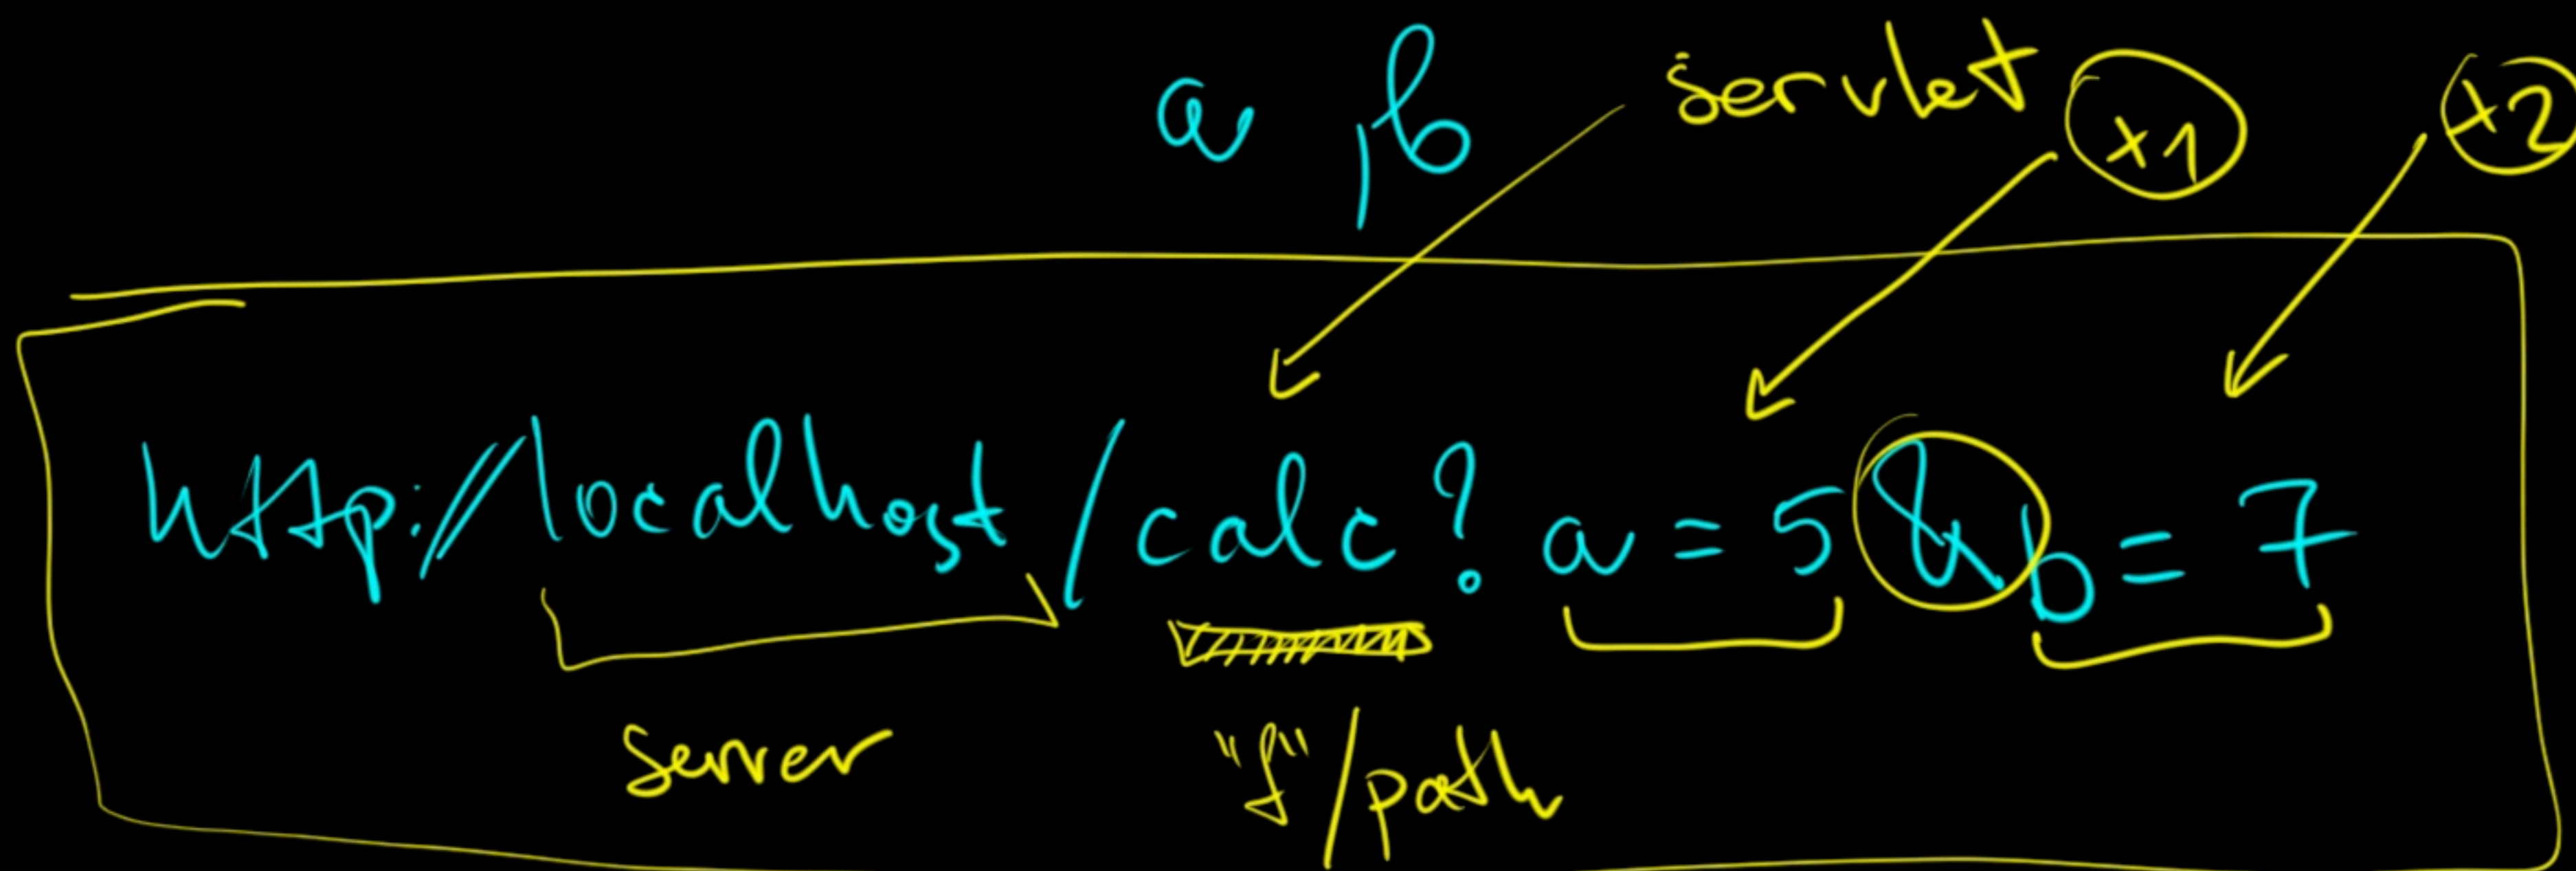 a, b servlet x1 x2
http://localhost/calc?a=5&b=7
server "f"/path